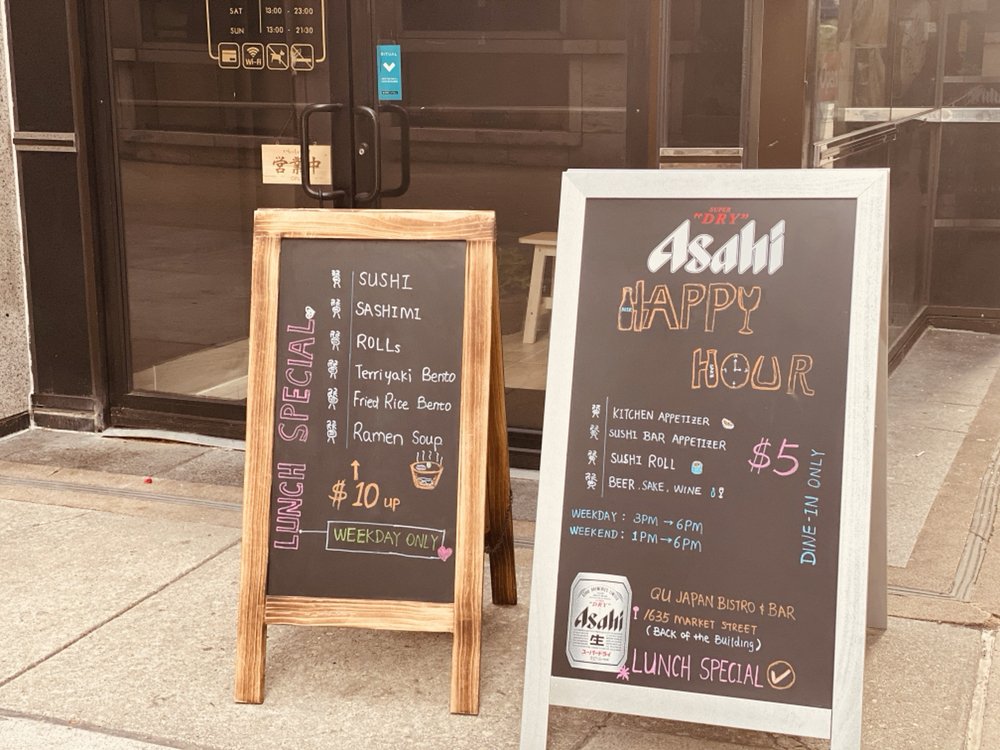 SAT 13:00 - 23:00
SUN 13:00 - 21:30
Wi-Fi
RITUAL
営業中
LUNCH SPECIAL
SUSHI
SASHIMI
ROLLS
Terriyaki Bento
Fried Rice Bento
Ramen Soup
↑
$10 UP
WEEKDAY ONLY
SUPER
"DRY"
Asahi
HAPPY
HOUR
KITCHEN APPETIZER
SUSHI BAR APPETIZER
SUSHI ROLL
BEER, SAKE, WINE
$5
DINE-IN ONLY
WEEKDAY : 3PM → 6PM
WEEKEND : 1PM → 6PM
"DRY"
Asahi
生
スーパードライ
QU JAPAN BISTRO & BAR
1635 MARKET STREET
(BACK of the Building)
*LUNCH SPECIAL